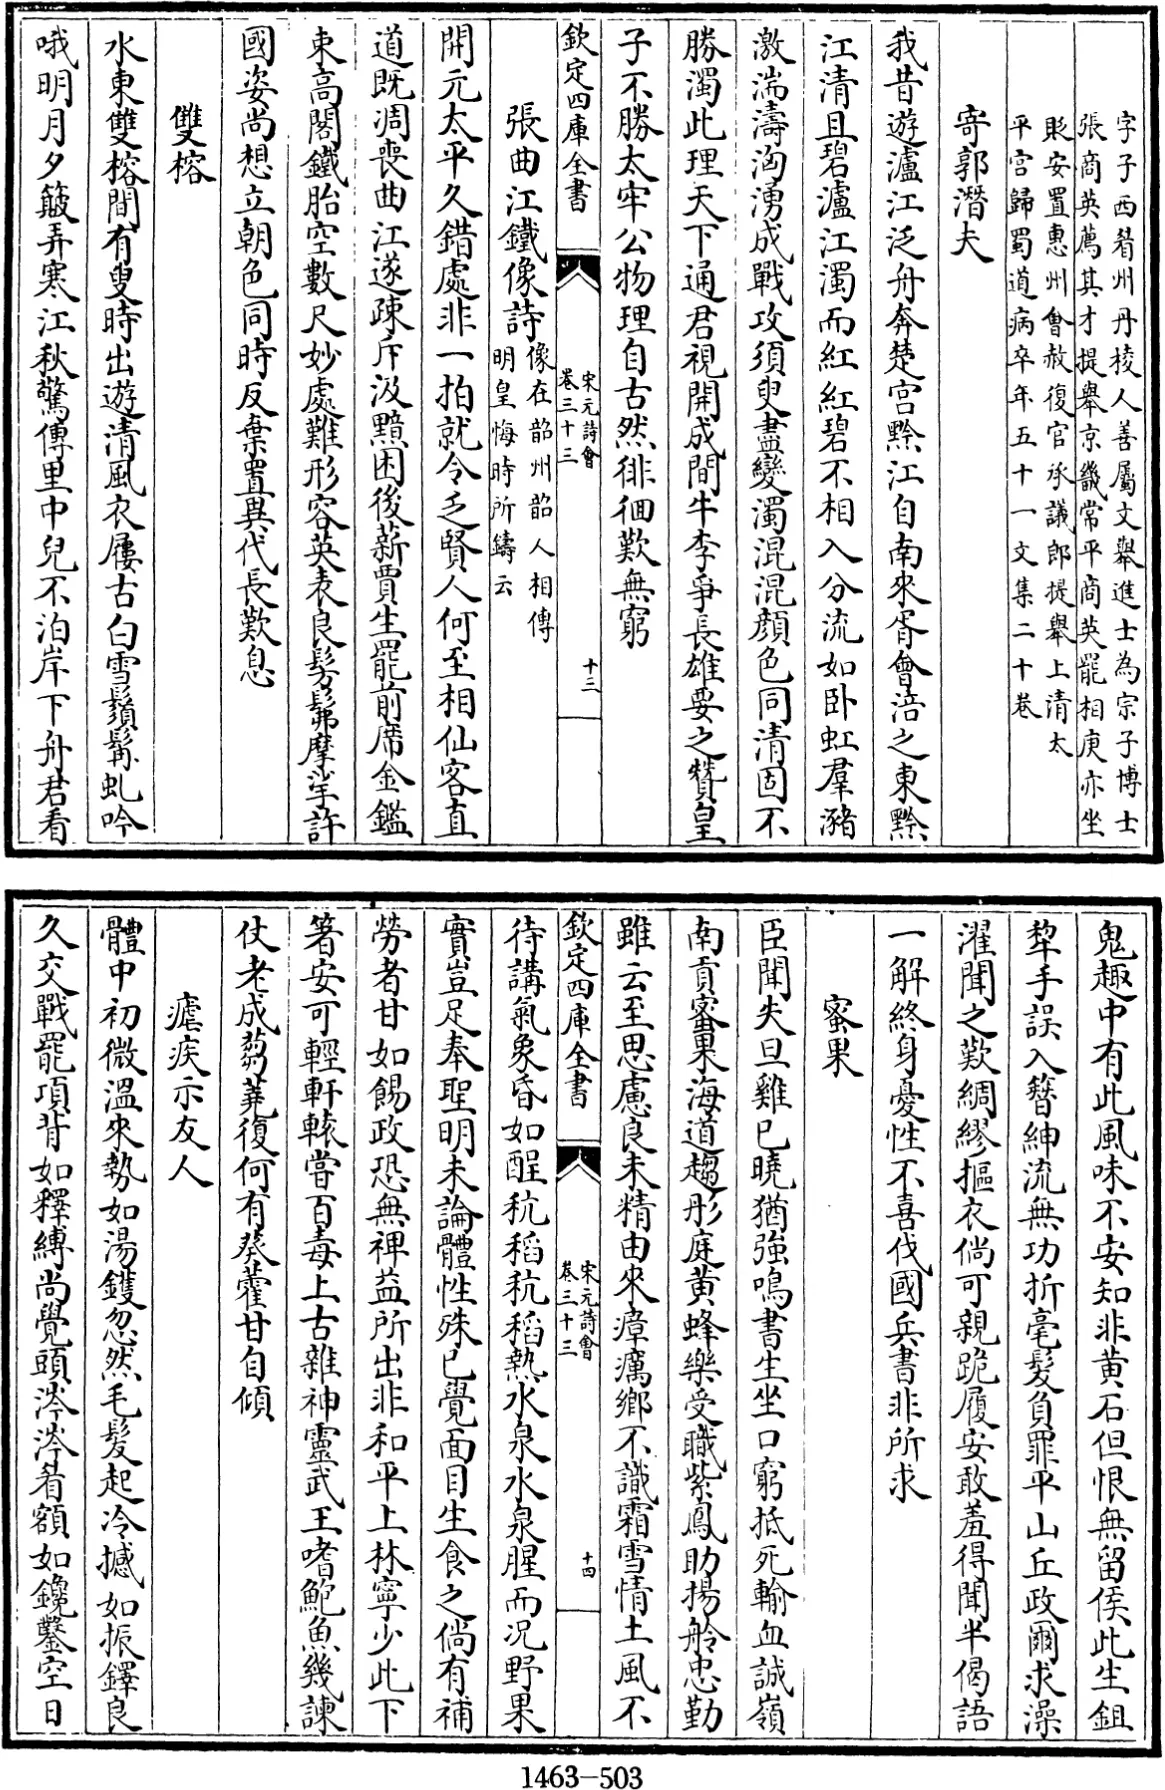 字子西眉州丹棱人善屬文舉進士為宗子博士
張商英薦其才提舉京畿常平商英罷相庚亦坐
貶安置惠州會赦復官承議郎提舉上清太
平宫歸蜀道病卒年五十一文集二十卷
寄郭潛夫
我昔遊瀘江泛舟奔楚宫黔江自南來胥會涪之東黔
江清且碧瀘江濁而紅紅碧不相入分流如卧虹羣瀦
激湍濤洶湧成戰攻須臾盡變濁混混顔色同清固不
勝濁此理天下通君視開成間牛李爭長雄要之贊皇
子不勝太牢公物理自古然徘徊歎無窮
欽定四庫全書
宋元詩會
卷三十三
十三
張曲江鐵像詩
像在韶州韶人相傳
明皇悔時所鑄云
開元太平久錯處非一拍就令乏賢人何至相仙客直
道既凋喪曲江遂疎斥汲黯困後薪賈生罷前席金鑑
束高閣鐵胎空數尺妙處難形容英表良髣髴摩挲許
國姿尚想立朝色同時反棄置異代長歎息
雙榕
水東雙榕間有叟時出遊清風衣屨古白雪鬚髯虬吟
哦明月夕簸弄寒江秋驚傳里中兒不泊岸下舟君看
鬼趣中有此風味不安知非黄石但恨無留侯此生鉏
犂手誤入簪紳流無功折毫髮負罪平山丘政爾求澡
濯聞之歎綢繆摳衣倘可親跪履安敢羞得聞半偈語
一解終身憂性不喜伐國兵書非所求
蜜果
臣聞失旦雞已曉猶強鳴書生坐口窮抵死輸血誠嶺
南貢蜜果海道趨彤庭黄蜂樂受職紫鳳助揚舲忠勤
雖云至思慮良未精由來瘴癘鄉不識霜雪情土風不
欽定四庫全書
宋元詩會
卷三十三
十四
待講氣象昏如酲秔稻秔稻熱水泉水泉腥而况野果
實豈足奉聖明未論體性殊已覺面目生食之倘有補
勞者甘如餳政恐無裨益所出非和平上林寧少此下
箸安可輕軒轅嘗百毒上古雜神靈武王嗜鮑魚幾諫
仗老成蒭蕘復何有葵藿甘自傾
瘧疾示友人
體中初微溫來勢如湯鑊忽然毛髮起冷撼如振鐸良
久交戰罷項背如釋縛尚覺頭涔涔着額如鑱鑿空日
1463-503